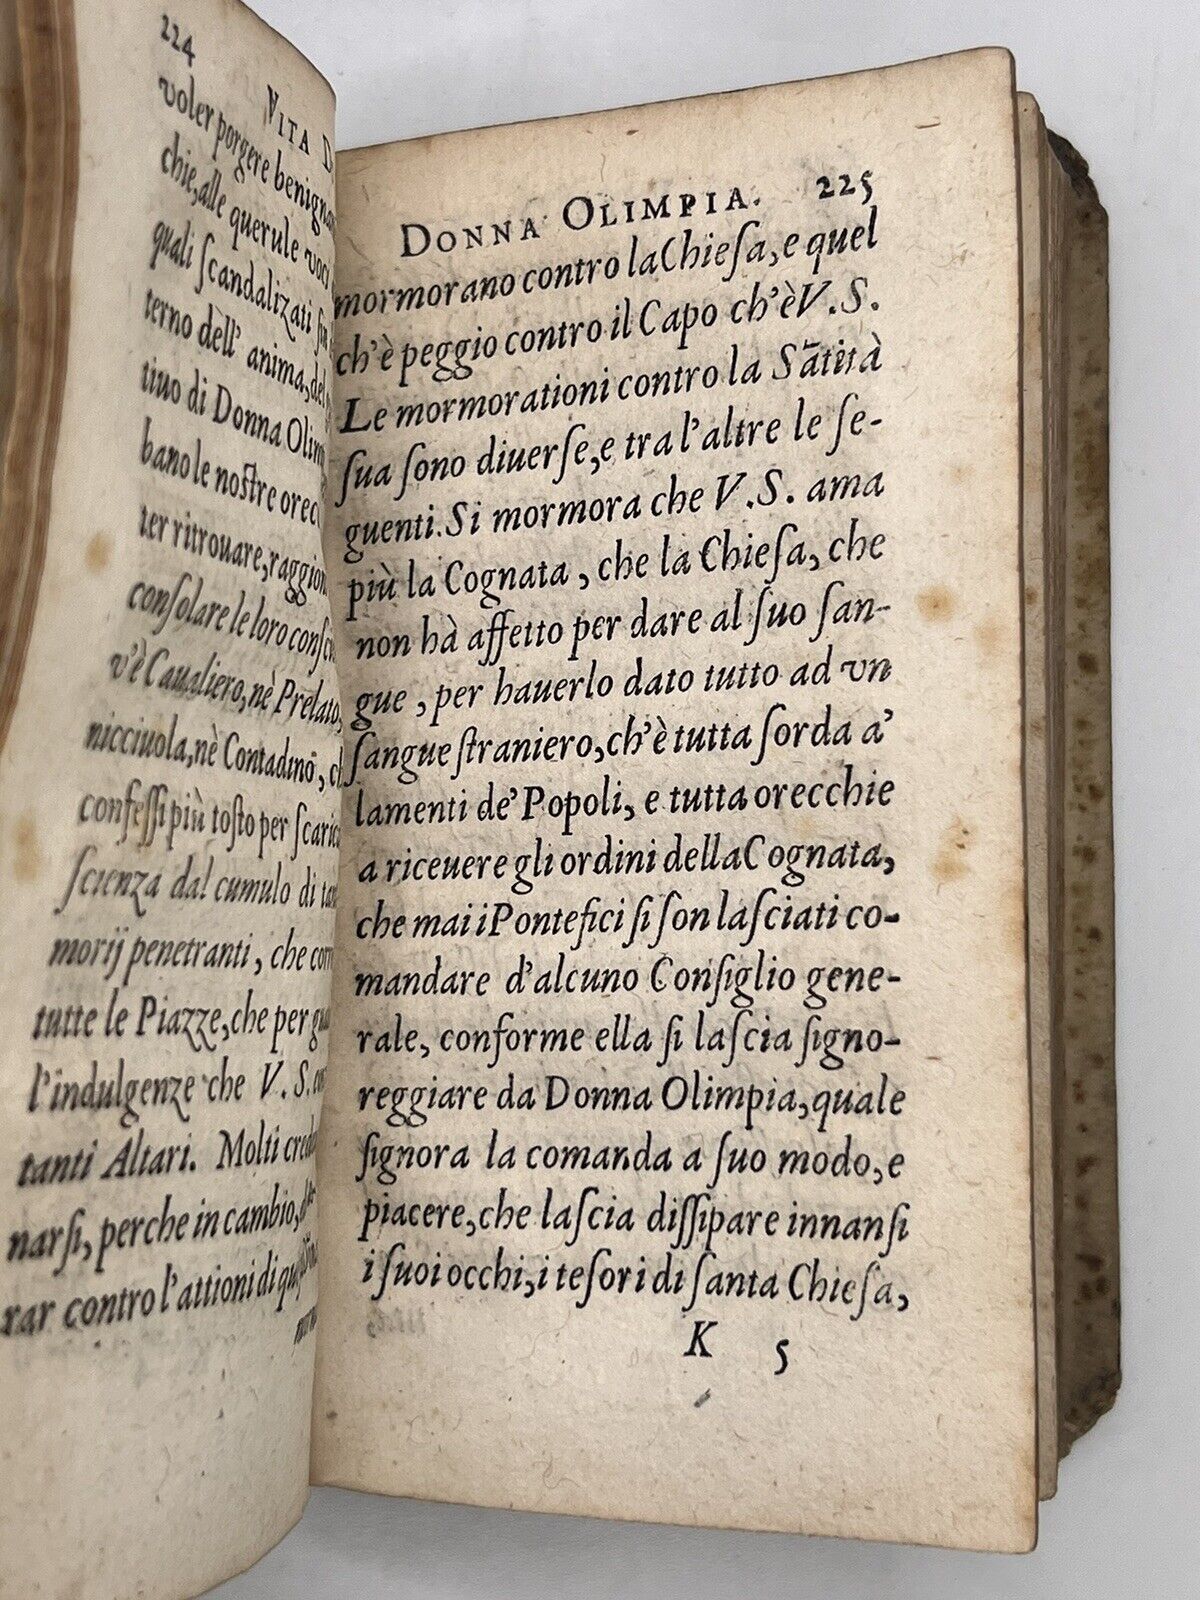 224
VITA D
voler porgere benigna
chie, alle querule voci
quali ſcandalizati
terno dell' anima, del
tiuo di Donna Olim
bano le noſtre orec
ter ritrouare, raggion
conſolare le loro conſci
v'è Caualiero, nè Prelato,
nicciuola, nè Contadinō,
confeſſi più toſto per ſcaric
ſcienza dal cumulo di tan
morij penetranti, che corr
tutte le Piazze, che per gua
l'indulgenze che V. S.
tanti Altari. Molti credo
narſi, perche in cambio,
rar contro l'attioni di
DONNA OLIMPIA. 225
mormorano contro la Chieſa, e quel
ch'è peggio contro il Capo ch'è V. S.
Le mormorationi contro la Sātità
ſua ſono diuerſe, e tra l'altre le ſe-
guenti. Si mormora che V. S. ama
più la Cognata, che la Chieſa, che
non hà affetto per dare al ſuo ſan-
gue, per hauerlo dato tutto ad vn
ſangue ſtraniero, ch'è tutta ſorda a'
lamenti de' Popoli, e tutta orecchie
a riceuere gli ordini della Cognata,
che mai i Pontefici ſi ſon laſciati co-
mandare d'alcuno Conſiglio gene-
rale, conforme ella ſi laſcia ſigno-
reggiare da Donna Olimpia, quale
ſignora la comanda a ſuo modo, e
piacere, che laſcia diſſipare innanſi
i ſuoi occhi, i teſori di ſanta Chieſa,
K 5